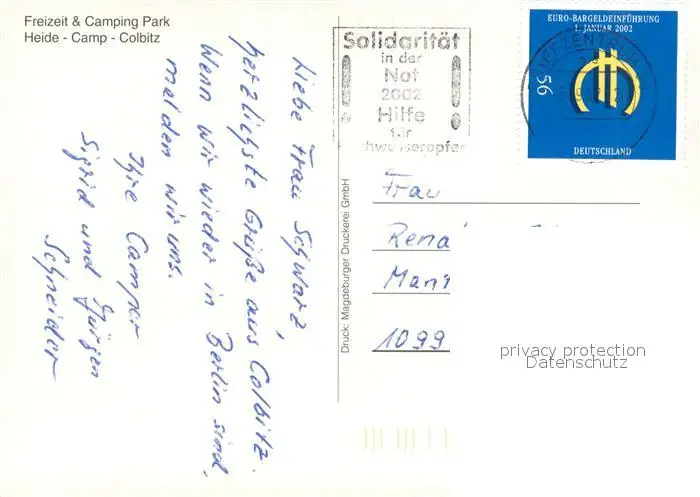 Freizeit & Camping Park
Heide - Camp - Colbitz
Liebe Frau Schwarz,
herzlichste Grüße aus Colbitz.
Wenn wir wieder in Berlin sind,
melden wir uns.
Ihre Camper
Sigrid und Jürgen
Schneider
Druck: Magdeburger Druckerei GmbH
Solidarität
in der
Not
2002
Hilfe
für
EURO-BARGELDEINFÜHRUNG
1. JANUAR 2002
56
DEUTSCHLAND
Frau
Rena
Man
1099
privacy protection
Datenschutz